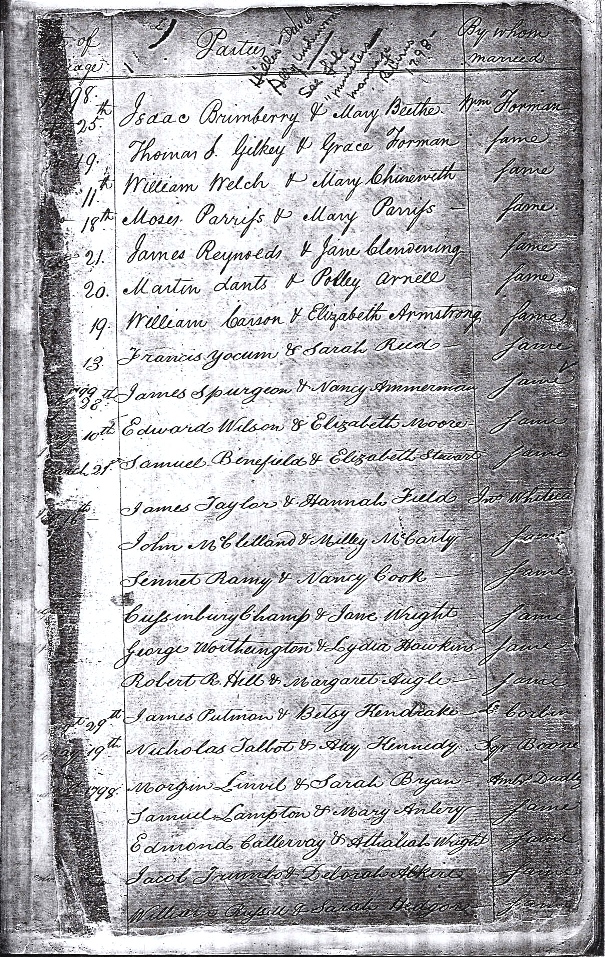 of Parties By whom
married
See File
"ministers
marriage
returns
1798"
1798.
25th Isaac Brumberry & Mary Beethe Wm Forman
19. Thomas S. Gilkey & Grace Forman same
11th William Welch & Mary Chinewith same
18th Moses Parriss & Mary Parriss — same
21. James Reynolds & Jane Clendening same
20. Martin Lants & Polley Arnell same
19. William Carson & Elizabeth Armstrong same
13 Francis Yocum & Sarah Reed — same
28th James Spurgeon & Nancy Ammerman same
10th Edward Wilson & Elizabeth Moore same
Samuel Benefield & Elizabeth Stewart same
16th James Taylor & Hannah Field
John McClelland & Milley McCarty same
Sennet Ramy & Nancy Cook — same
Cussinbury Champ & Jane Wright same
George Worthington & Lydia Hawkins same
Robert R. Hill & Margaret Augle — same
29th James Putman & Betsy Hendrake Corbin
19th Nicholas Talbot & Aey Kennedy Sqr Boone
1798 Morgin Linvil & Sarah Bryan — Ambs Dudly
Samuel Lampton & Mary Anlery same
Edmond Callervay & Athaliah Wright same
Jacob Trumbo & Deborah same
William Russell & Sarah same